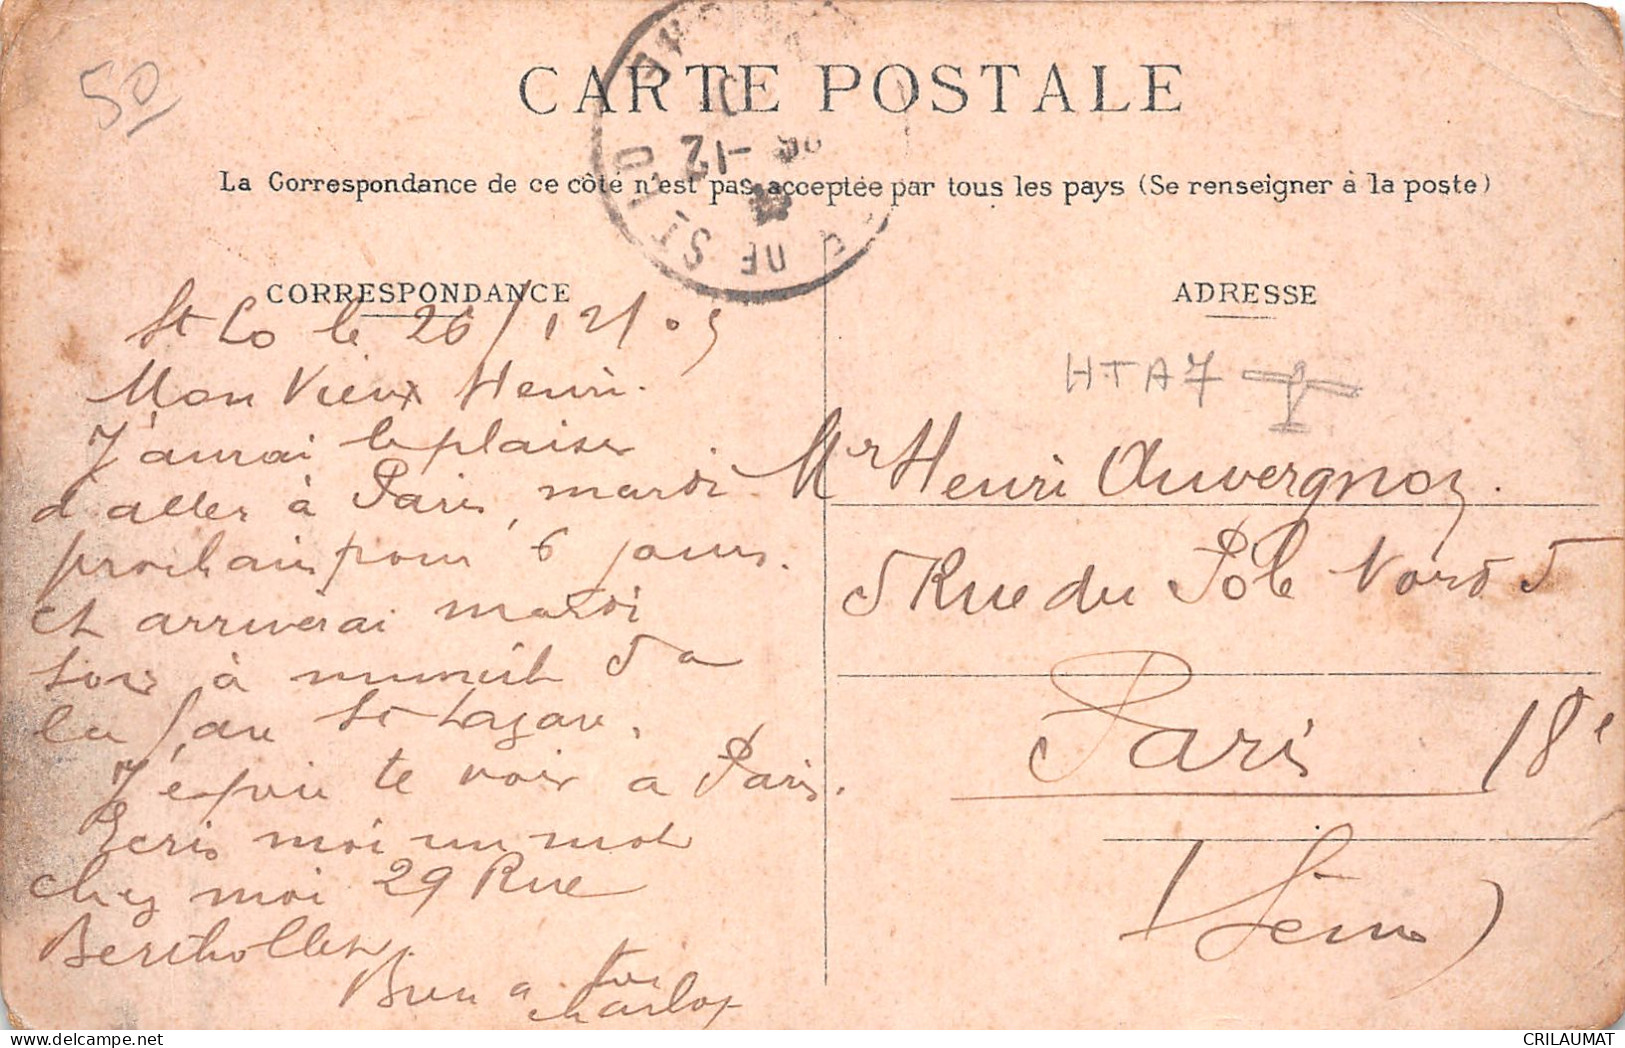 50
CARTE POSTALE
La Correspondance de ce côté n'est pas acceptée par tous les pays (Se renseigner à la poste)
-12
DE ST LO
CORRESPONDANCE
St Lo le 26/12/05
Mon Vieux Henri.
J'aurai le plaisir
d'aller à Paris, mardi
prochain pour 6 jours.
et arriverai mardi
soir à minuit 5 a
la gare St Lazare.
J'espère te voir a Paris.
Ecris moi un mot
chez moi 29 Rue
Berthollet.
Bien a toi
Charlot
ADRESSE
HTA7
Mr Henri Auvergnoz.
5 Rue du Pole Nord 5
Paris 18e
(Seine)
CRILAUMAT